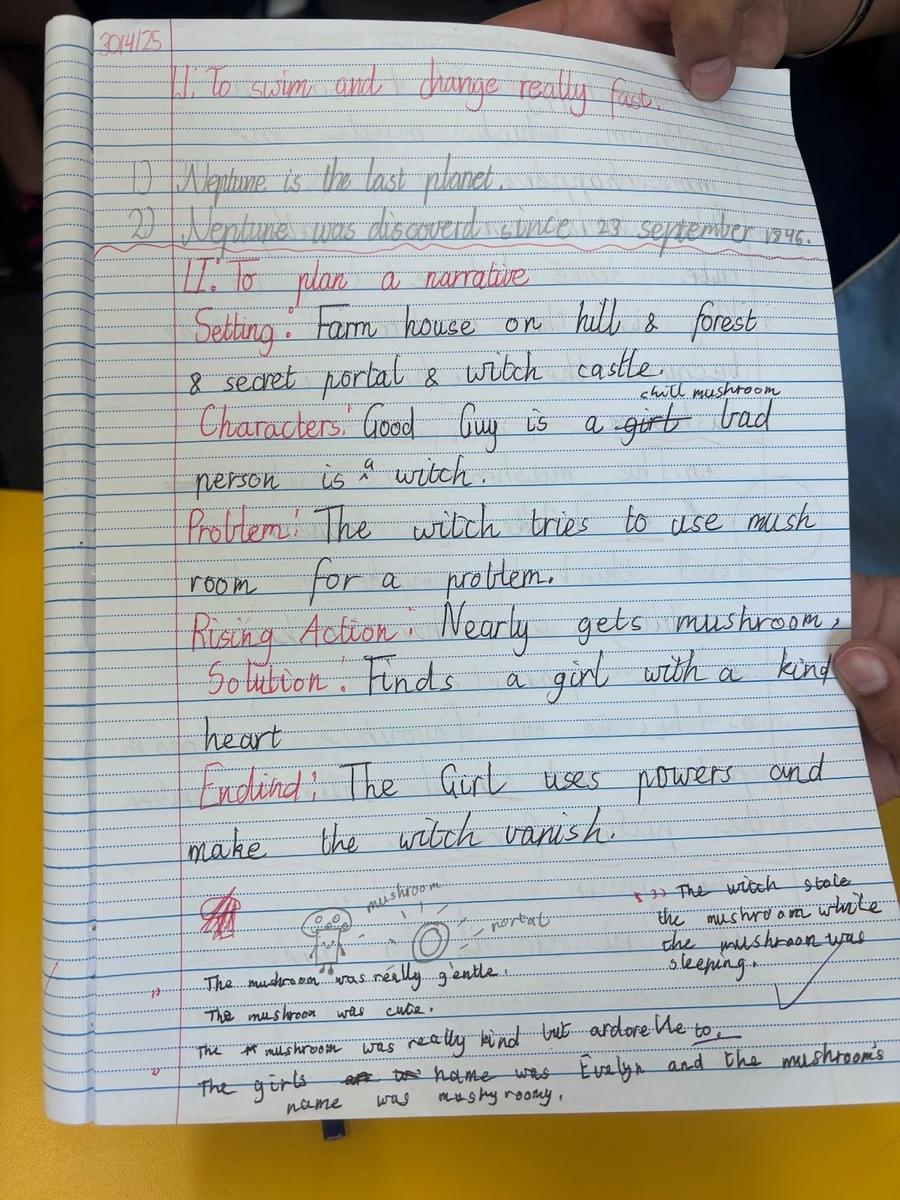 30/4/25
LI: To swim and change really fast.
1) Neptune is the last planet.
2) Neptune was discoverd since 23 september 1846.
LI: To plan a narrative
Setting: Farm house on hill & forest
& secret portal & witch castle.
chill mushroom
Characters: Good Guy is a girl bad
person is a witch.
Problem: The witch tries to use mush
room for a problem.
Rising Action: Nearly gets mushroom,
Solution: Finds a girl with a kind
heart
Endind: The Girl uses powers and
make the witch vanish.
mushroom
portal
3)) The witch stole
the mushroom while
the mushroom was
sleeping.
1) The mushroom was really gentle.
The mushroom was cute.
The mushroom was really kind but adorelle to.
2) The girls name was Evelyn and the mushroom's
name was mushyroomy.